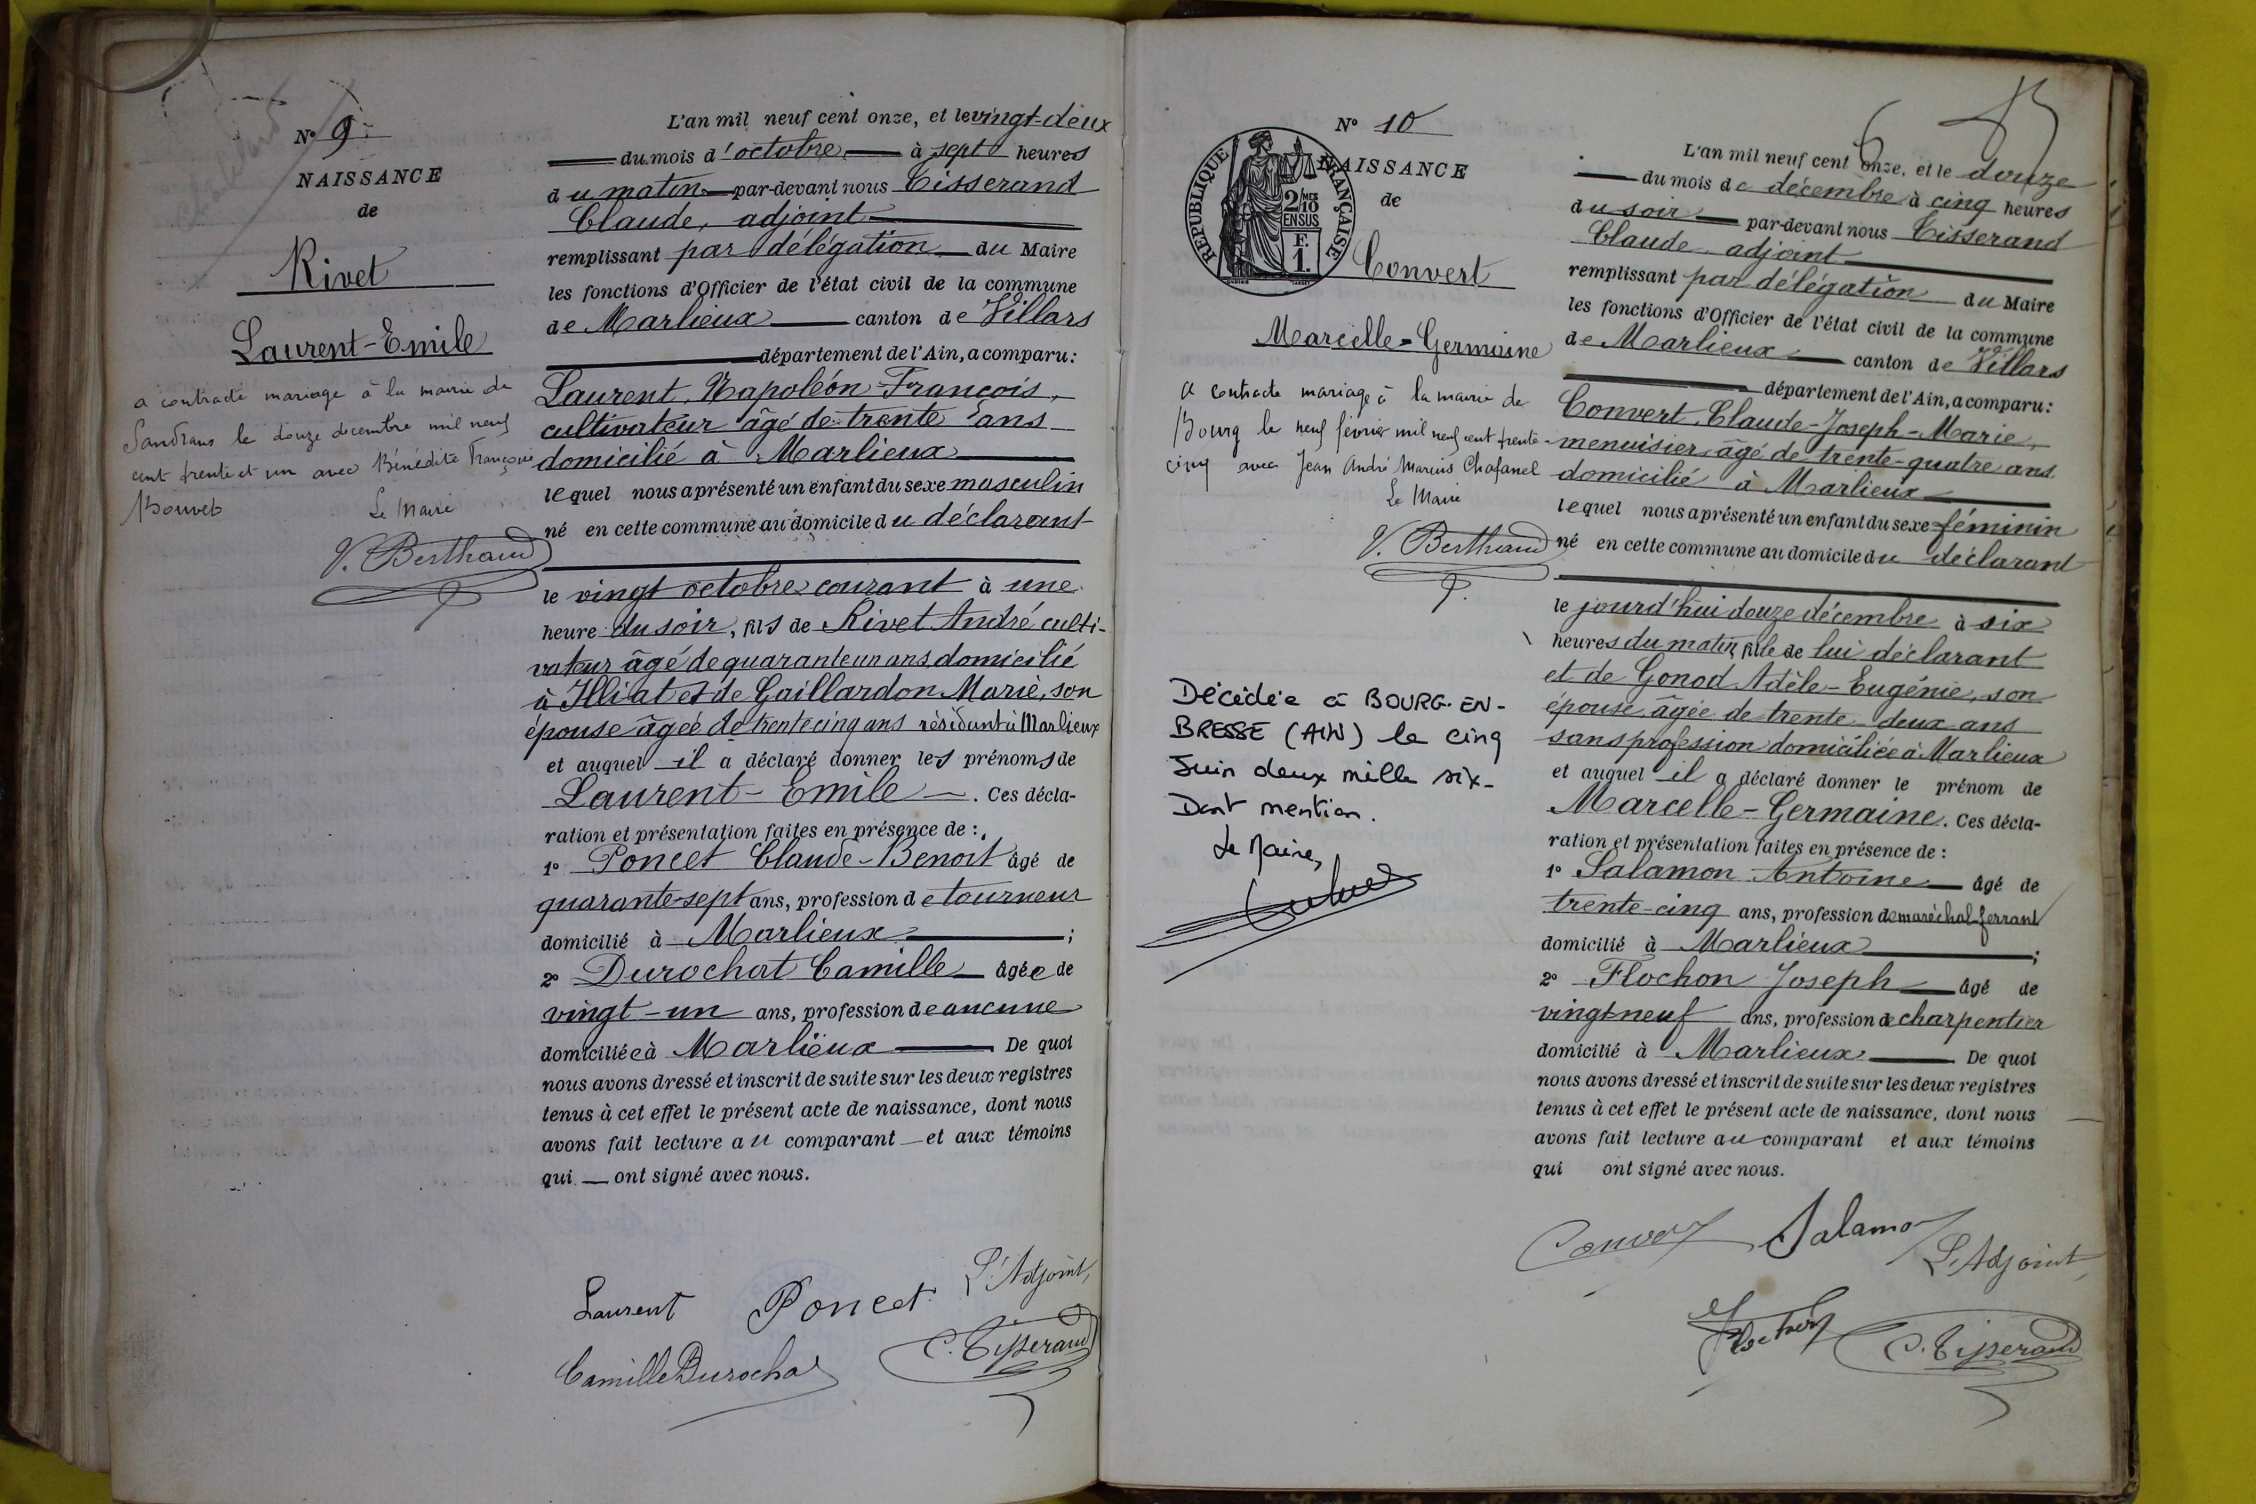 N° 9
NAISSANCE
de
Rivet
Laurent-Emile
a contracté mariage à la mairie de
Sandrans le douze decembre mil neuf
cent trente et un avec Bénédite Françoise
Bouvet
Le Maire
V. Berthaud
L'an mil neuf cent onze, et le vingt-deux
du mois d'octobre à sept heures
du matin par-devant nous Tisserand
Claude, adjoint
remplissant par délégation du Maire
les fonctions d'Officier de l'état civil de la commune
de Marlieux canton de Villars
département de l'Ain, a comparu:
Laurent, Napoléon-François,
cultivateur âgé de trente ans
domicilié à Marlieux
lequel nous a présenté un enfant du sexe masculin
né en cette commune au domicile du déclarant
le vingt octobre courant à une
heure du soir, fils de Rivet André culti-
vateur âgé de quarante un ans domicilié
à Illiat et de Gaillardon Marie, son
épouse âgée de trente cinq ans résidant à Marlieux
et auquel il a déclaré donner les prénoms de
Laurent-Emile. Ces décla-
ration et présentation faites en présence de :
1° Poncet Claude-Benoit âgé de
quarante-sept ans, profession de tourneur
domicilié à Marlieux ;
2° Durochat Camille âgée de
vingt-un ans, profession de aucune
domiciliée à Marlieux De quoi
nous avons dressé et inscrit de suite sur les deux registres
tenus à cet effet le présent acte de naissance, dont nous
avons fait lecture au comparant et aux témoins
qui ont signé avec nous.
Laurent Poncet L'Adjoint,
Camille Durochat C. Tisserand
N° 10
NAISSANCE
de
RÉPUBLIQUE FRANÇAISE
2/10 MES
EN SUS
F.
1.
Convert
Marcelle-Germaine
a contracté mariage à la mairie de
Bourg le neuf février mil neuf cent trente-
cinq avec Jean André Marius Chafanel
Le Maire
V. Berthaud
Décédée à BOURG-EN-
BRESSE (AIN) le cinq
Juin deux mille six-
Dont mention.
Le Maire,
L'an mil neuf cent onze, et le douze
du mois de décembre à cinq heures
du soir par-devant nous Tisserand
Claude, adjoint
remplissant par délégation du Maire
les fonctions d'Officier de l'état civil de la commune
de Marlieux canton de Villars
département de l'Ain, a comparu:
Convert, Claude-Joseph-Marie,
menuisier, âgé de trente-quatre ans
domicilié à Marlieux
lequel nous a présenté un enfant du sexe féminin
né en cette commune au domicile du déclarant
le jourd'hui douze décembre à six
heures du matin, fille de lui déclarant
et de Gonod Adèle-Eugénie, son
épouse, âgée de trente-deux ans
sans profession domiciliée à Marlieux
et auquel il a déclaré donner le prénom de
Marcelle-Germaine. Ces décla-
ration et présentation faites en présence de :
1° Salamon Antoine âgé de
trente-cinq ans, profession de maréchal-ferrant
domicilié à Marlieux ;
2° Flochon Joseph âgé de
vingt-neuf ans, profession de charpentier
domicilié à Marlieux De quoi
nous avons dressé et inscrit de suite sur les deux registres
tenus à cet effet le présent acte de naissance, dont nous
avons fait lecture au comparant et aux témoins
qui ont signé avec nous.
Convert Salamon L'Adjoint,
Flochon C. Tisserand